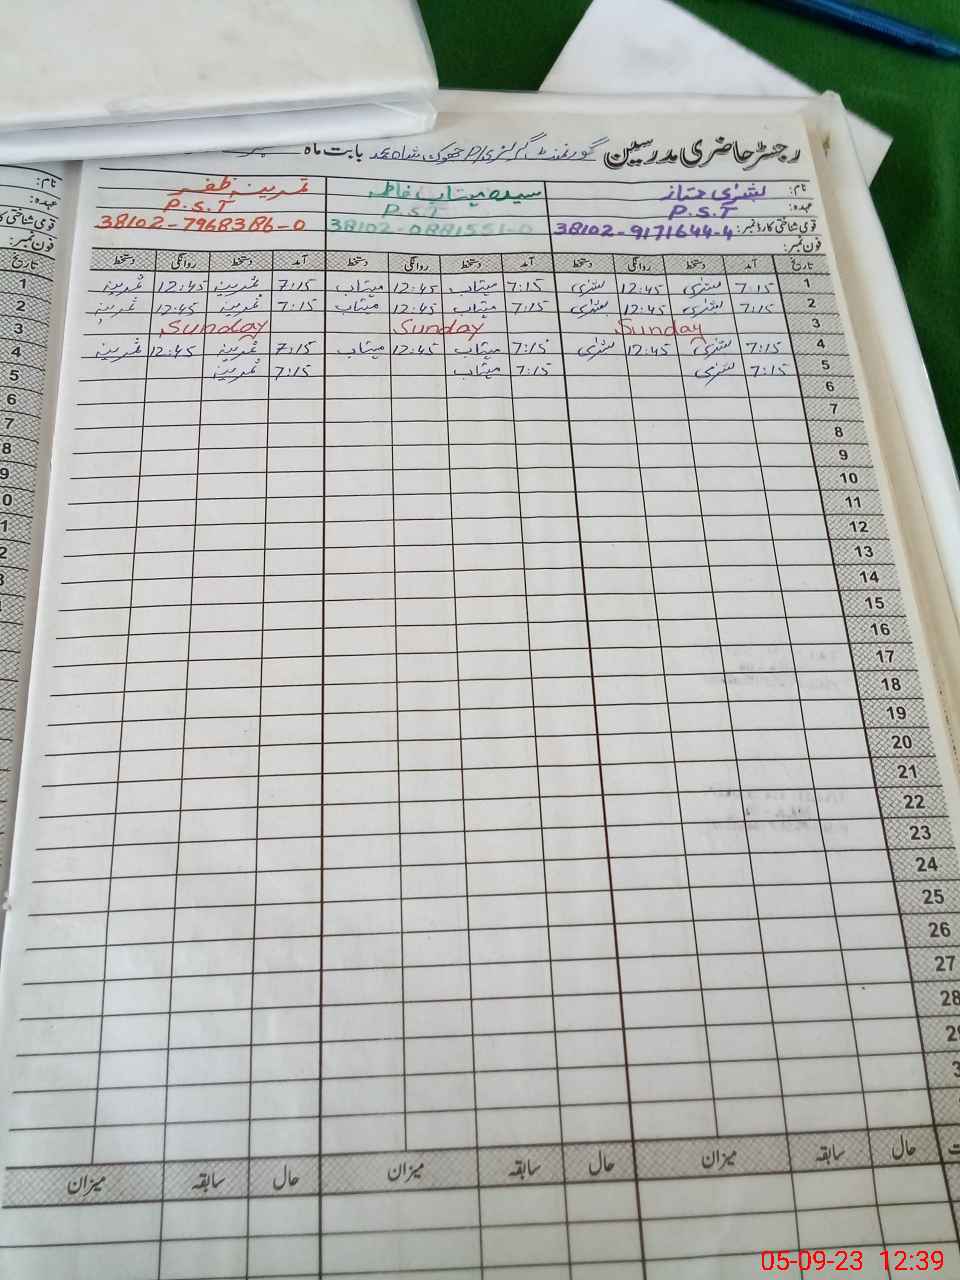 رجسٹر حاضری مدرسین گورنمنٹ گرلز P/S جھوک شاہ محمد بابت ماہ
نام: بشریٰ ممتاز سیدہ مہتاب فاطمہ ثمرینہ ظفر
عہدہ: P.S.T P.S.T P.S.T
قومی شناختی کارڈ نمبر: 38102-9171644-4 38102-0881551-0 38102-7968386-0
فون نمبر:
تاریخ آمد دستخط روانگی دستخط آمد دستخط روانگی دستخط آمد دستخط روانگی دستخط
1 7:15 بشریٰ 12:45 بشریٰ 7:15 مہتاب 12:45 مہتاب 7:15 ثمرینہ 12:45 ثمرینہ
2 7:15 بشریٰ 12:45 بشریٰ 7:15 مہتاب 12:45 مہتاب 7:15 ثمرینہ 12:45 ثمرینہ
3 Sunday Sunday Sunday
4 7:15 بشریٰ 12:45 بشریٰ 7:15 مہتاب 12:45 مہتاب 7:15 ثمرینہ 12:45 ثمرینہ
5 7:15 بشریٰ 7:15 مہتاب 7:15 ثمرینہ
6
7
8
9
10
11
12
13
14
15
16
17
18
19
20
21
22
23
24
25
26
27
28
حال سابقہ میزان حال سابقہ میزان حال سابقہ میزان
نام:
عہدہ:
قومی شناختی کا
فون نمبر:
تاریخ
1
2
3
4
5
6
7
8
9
05-09-23 12:39